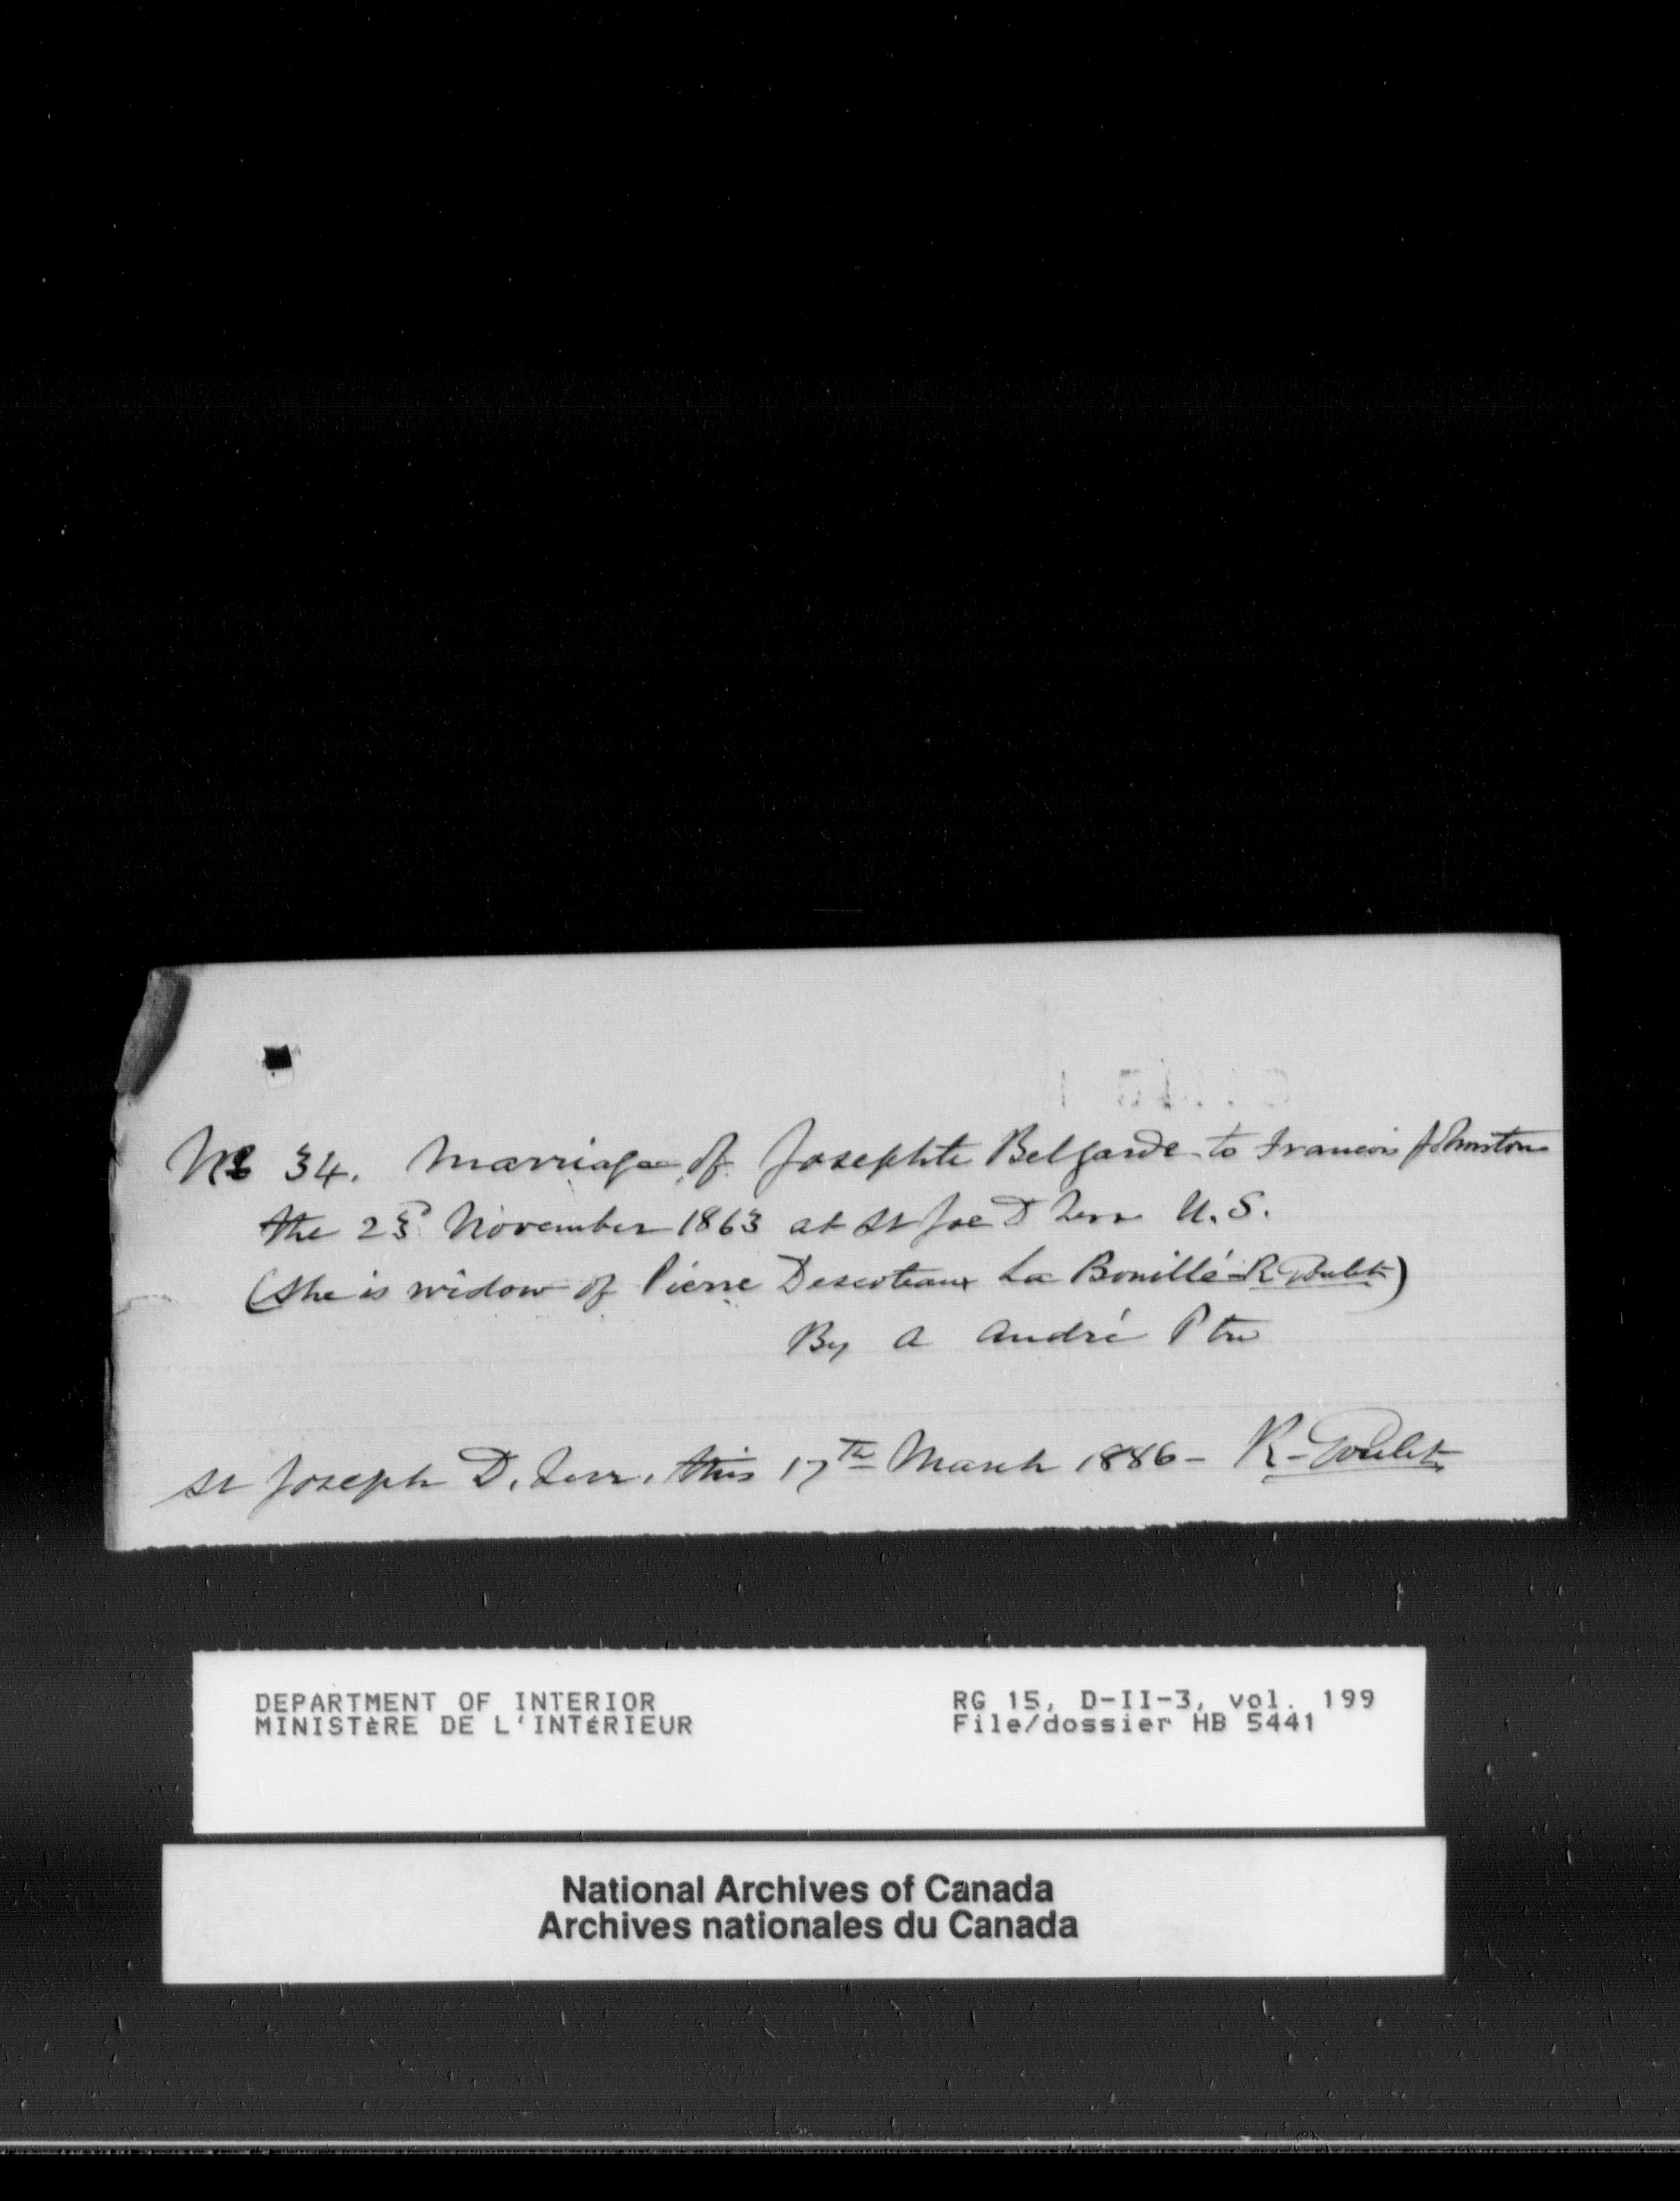 No 34. Marriage of Josephte Belgarde to Francois Johnston
the 23d November 1863 at St Joe D Terr U.S.
(She is widow of Pierre Descoteaux La Bouillé - R Goulet)
By A André Ptre
St Joseph D. Terr. this 17th March 1886 - R - Goulet
DEPARTMENT OF INTERIOR
MINISTÈRE DE L'INTÉRIEUR
RG 15, D-II-3, vol. 199
File/dossier HB 5441
National Archives of Canada
Archives nationales du Canada